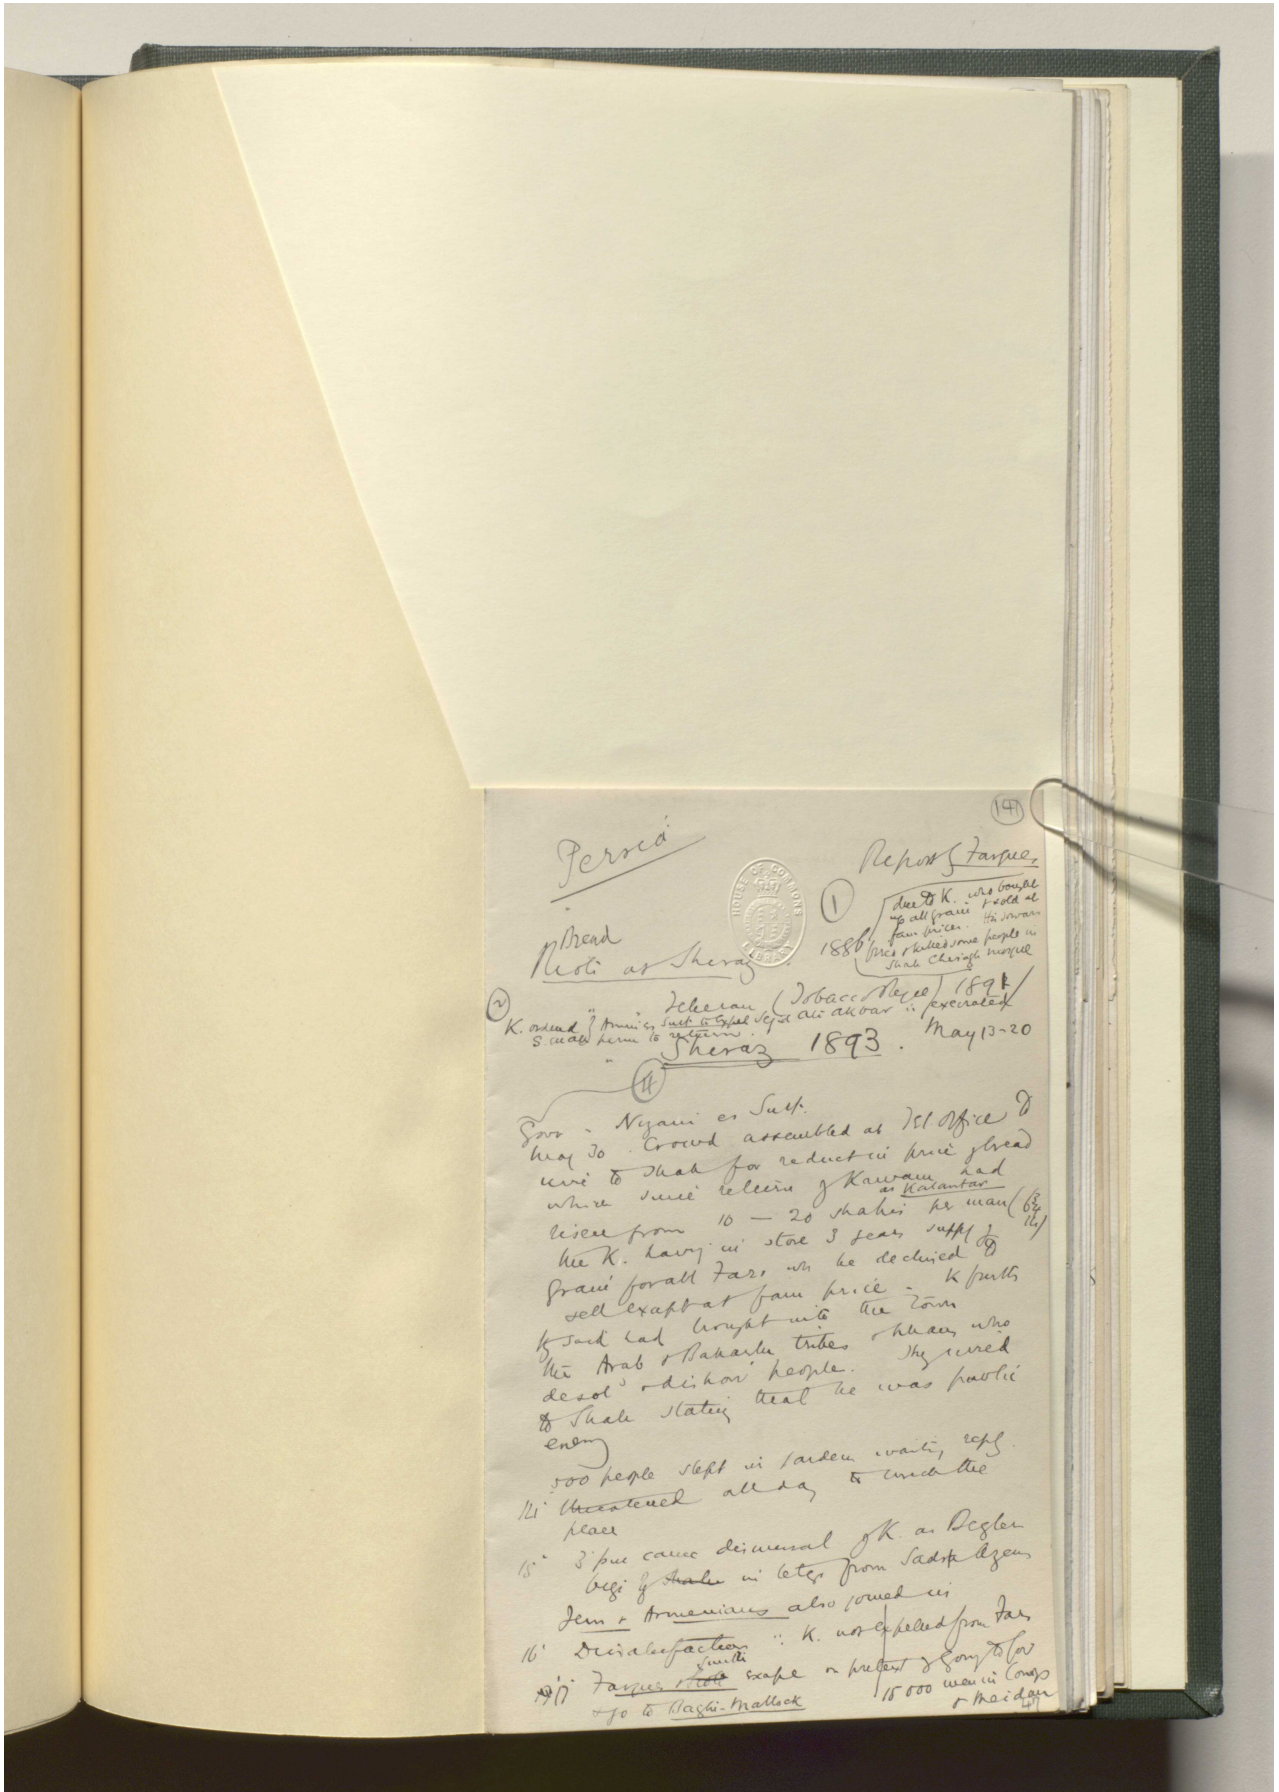 141
Persia
Report of Fargues
HOUSE OF COMMONS LIBRARY
1
due to K. who bought
up all grain & sold at
fam prices. His sowars
fired & killed some people in
Shah Cheragh mosque
1886
Bread
Riots at Sheraz
2
" Teheran (Tobacco Regie) 1891
K. ordered Sejid Ali Akbar executed
" Sheraz 1893. May 13-20
Govr - Nizam es Sult.
May 30. Crowd assembled at Tel office to
wire to Shah for reduct in price of bread
which since return of Kawam had
as Kalantar
risen from 10 — 20 shahis per man
the K. having in store 3 years supply of
grain for all Fars wh he declined to
sell except at fam price - K furth
had brought into the town
the Arab & Baharlu tribes who
people. They wired
to Shah stating that he was public
enemy
500 people slept in garden waiting reply.
14 Threatened all day to wreck the
place
15 3 pm came dismissal of K. as Begler
begi in telegr from Sadr Azem
Jews & Armenians also joined in
16 Dissatisfaction ∵ K. not expelled from Fars
17 Fargues & Smith
escape on pretext of going to Gov
& go to Bagh-i-Mallock
15 000 men in Consp
& Meidan